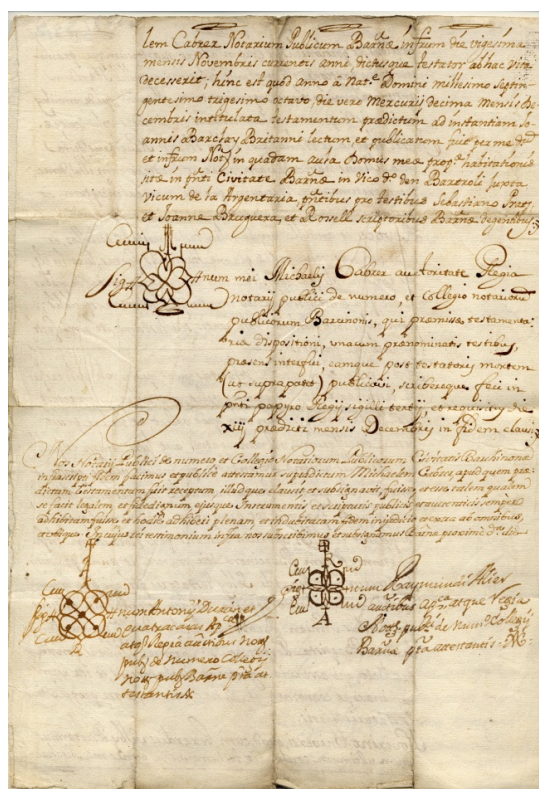 lem Cabrer Notarium Publicum Barnæ infrum die vigesima
mensis Novembris currentis anni, dictusque testator ab hac vita
decesserit; hinc est quod anno a Nat.e Domini millesimo septin-
gentesimo trigesimo octavo, die vero Mercurii decima mensis De-
cembris intitulata testamentum prædictum ad instantiam Jo-
annis Barclay Britanni lectum, et publicatum fuit per me
et infrum Not. in quadam aula Domus meæ prop.e habitationis
sitæ in Civitate Barnæ in Vico den Bartroli juxta
vicum de la Argentaria, pntibus pro testibus Sebastiano Prats,
et Joanne Bruguera, et Rosell scriptoribus Barnæ degentibus
Sig num mei Michaelis Cabrer auctoritate Regia
notarii publici de numero, et Collegio notariorum
publicorum Barcinonis, qui præmissæ testamenta-
riæ dispositioni, unacum prænominatis testibus,
præsens interfui, eamque post testatoris mortem
(ut supra patet) publicavi, scribereque feci in
pnti papyro Regii sigilli tertii, et requisitus die
xiij prædicti mensis Decembris in fidem clausi
Nos Notarii Publici de numero et Collegio Notariorum Publicorum Civitatis Barchinonæ
infrascripti fidem facimus et attestamur supradictum Michaelem Cabrer, apud quem præ-
dictum Testamentum fuit receptum, illudque clausit et subsignavit, fuisse et esse talem qualem
se facit legalem, et fidedignum ejusque Instrumentis et scripturis publicis et autenticis semper
adhibitam fuisse et hodie adhiberi plenam et indubitatam fidem in judicio et extra ab omnibus,
In cujus rei testimonium infra nos subscribimus et subsignamus Barna
Sig num Raymundi Alier
auctibus atque Regia
Not. publ. de num.o Collegii
Barna attestantis
Sig num Antonii
Regia auctibus Not.
pub. de numero Collegii
Not. pub. Barnæ at-
testantis